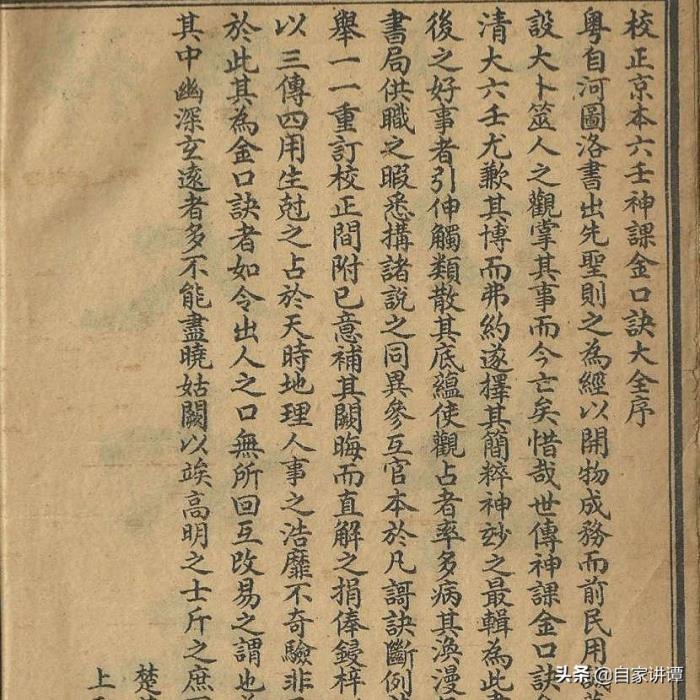 校正京本六壬神課金口訣大全序
粵自河圖洛書出先聖則之為經以開物成務而前民用
設大卜筮人之觀掌其事而今亡矣惜哉世傳神課金口訣
清大六壬尤歉其博而弗約遂擇其簡粹神玅之最輯為此
後之好事者引伸觸類散其底蘊使觀占者率多病其渙漫
書局供職之暇悉搆諸說之同異參互官本於凡謌訣斷例
舉一一重訂校正間附己意補其闕晦而直解之捐俸鋟梓
以三傳四用生尅之占於天時地理人事之浩靡不奇驗非
於此其為金口訣者如令出人之口無所回互改易之謂也
其中幽深玄遠者多不能盡曉姑闕以竢高明之士斤之庶
楚
上
头条 @自家讲谭